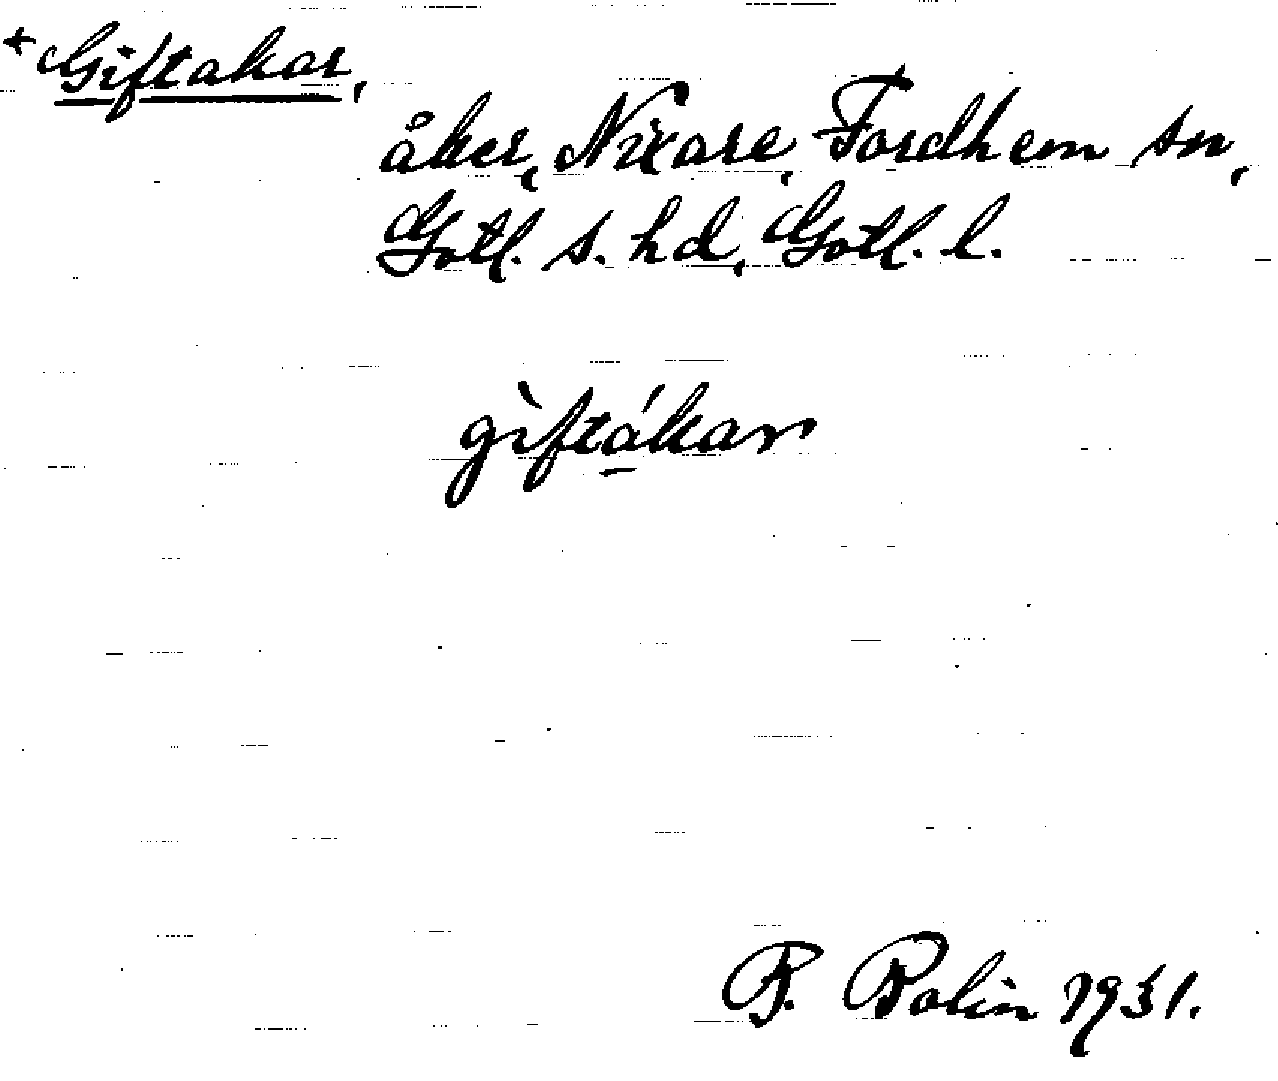 + Giftakar,
åker, Nixare, Fardhem sn,
Gotl. s. hd, Gotl. l.
gìftákar
P. Palin 1931.